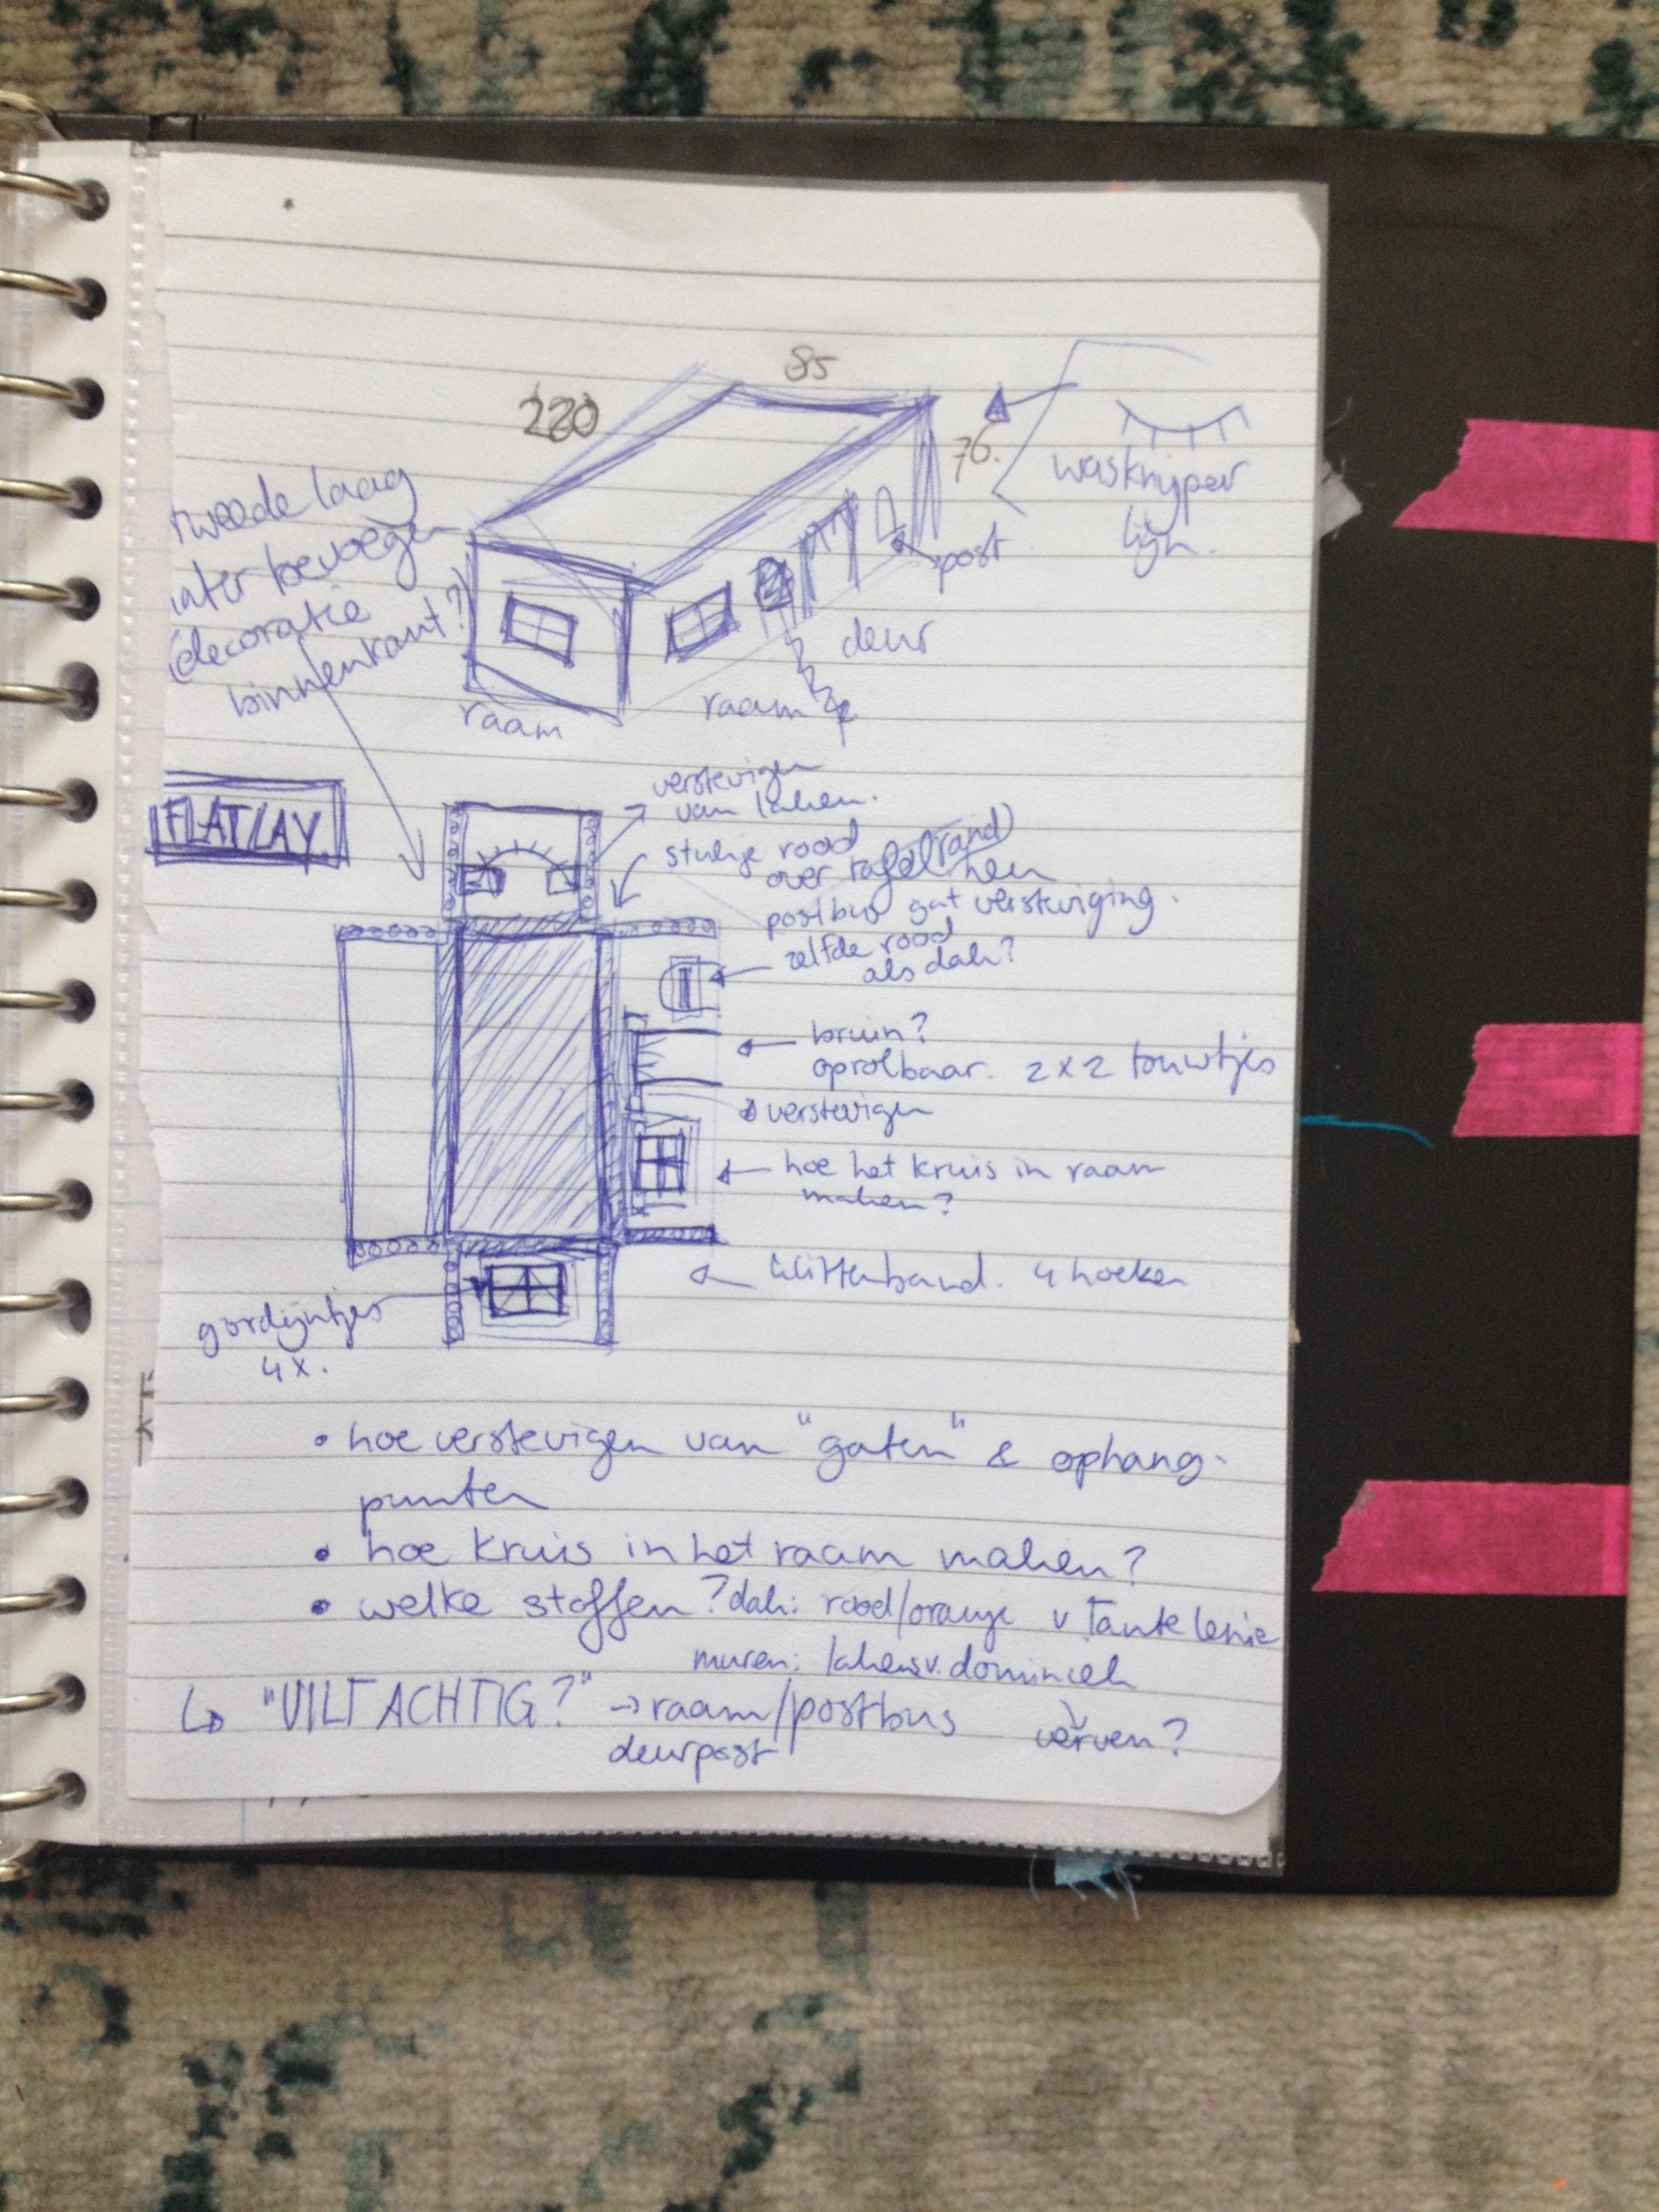 85
220
76.
wasknijper
lijn.
tweede laag
later toevoegen
(decoratie
binnenkant?)
post
deur
raam
raam
FLATLAY.
verstevigen
van laken.
stukje rood
over tafel(rand)
heen
postbus gat versteviging.
zelfde rood
als dak?
bruin?
oprolbaar. 2 x 2 touwtjes
verstevigen
hoe het kruis in raam
maken?
klittenband. 4 hoeken
gordijntjes
4x.
• hoe verstevigen van "gaten" & ophang-
punten
• hoe kruis in het raam maken?
• welke stoffen? dak: rood/oranje v Tante Lenie
muren: lakens v. dominiek
↳ "VILTACHTIG?" → raam/postbus
verven?
deurpost